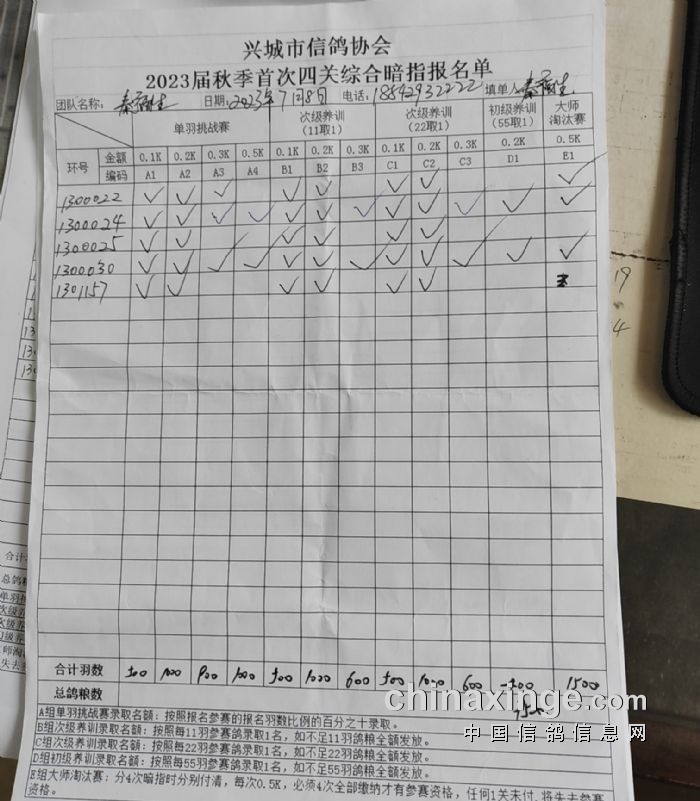 兴城市信鸽协会
2023届秋季首次四关综合暗指报名单
团队名称: 日期: 2023年7月8日 电话: 18842932222 填单人
单羽挑战赛 次级养训 (11取1) 次级养训 (22取1) 初级养训 (55取1) 大师淘汰赛
金额 0.1K 0.2K 0.3K 0.5K 0.1K 0.2K 0.3K 0.1K 0.2K 0.3K 0.2K 0.5K
环号 编码 A1 A2 A3 A4 B1 B2 B3 C1 C2 C3 D1 E1
1300022 ✓ ✓ ✓ ✓ ✓ ✓ ✓ ✓
1300024 ✓ ✓ ✓ ✓ ✓ ✓ ✓ ✓ ✓ ✓ ✓ ✓
1300025 ✓ ✓ ✓ ✓ ✓ ✓
1300030 ✓ ✓ ✓ ✓ ✓ ✓ ✓ ✓ ✓ ✓ ✓ ✓
1301157 ✓ ✓ ✓ ✓ ✓ ✓
合计羽数 500 1000 900 1000 500 1000 600 500 1000 600 400 1500
总鸽粮数
A组单羽挑战赛录取名额: 按照报名参赛的报名羽数比例的百分之十录取。
B组次级养训录取名额: 按照每11羽赛鸽录取1名, 如不足11羽鸽粮全额发放。
C组次级养训录取名额: 按照每22羽赛鸽录取1名, 如不足22羽鸽粮全额发放。
D组初级养训录取名额: 按照每55羽赛鸽录取1名, 如不足55羽鸽粮全额发放。
E组大师淘汰赛: 分4次暗指时分别付清, 每次0.5K, 必须4次全部缴纳才有参赛资格, 任何1关未付, 将失去参赛资格。
chinaxinge.com
中国信鸽信息网
19
4